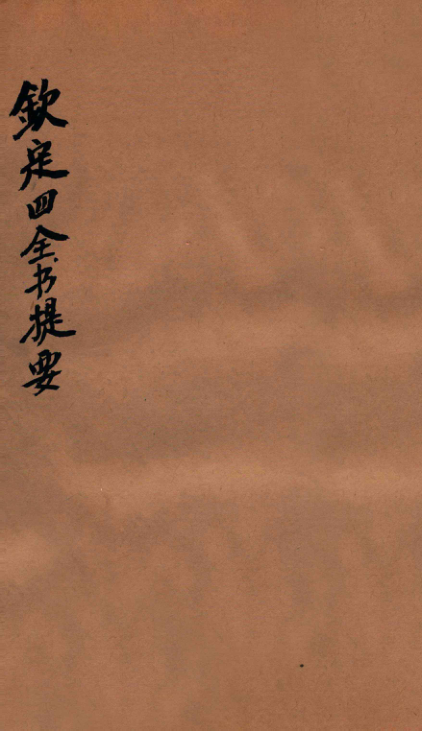 钦定四全书提要